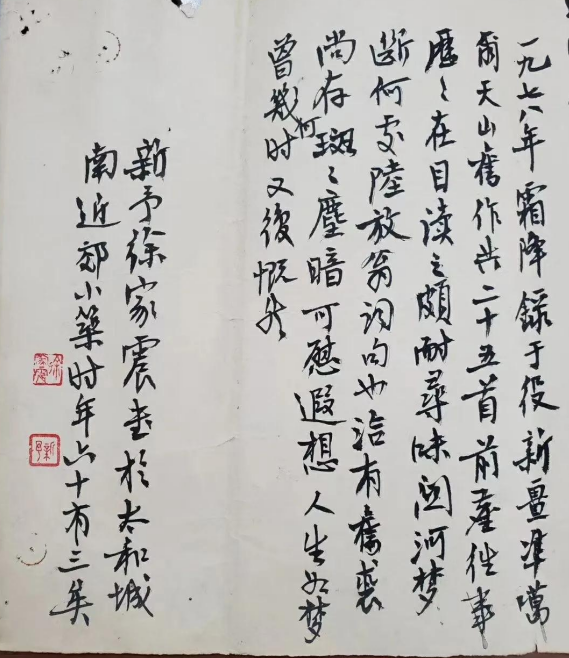 一九七八年霜降録于役新畺準噶
爾天山舊作共二十五首前塵往事
歷々在目读之颇耐尋味関河梦
断何处陸放翁词句也洽有舊裘
尚存斑々塵暗可慰遐想人生如梦
曾幾何时又復慨然
新予徐家震书於太和城
南近郊小築时年六十有三矣